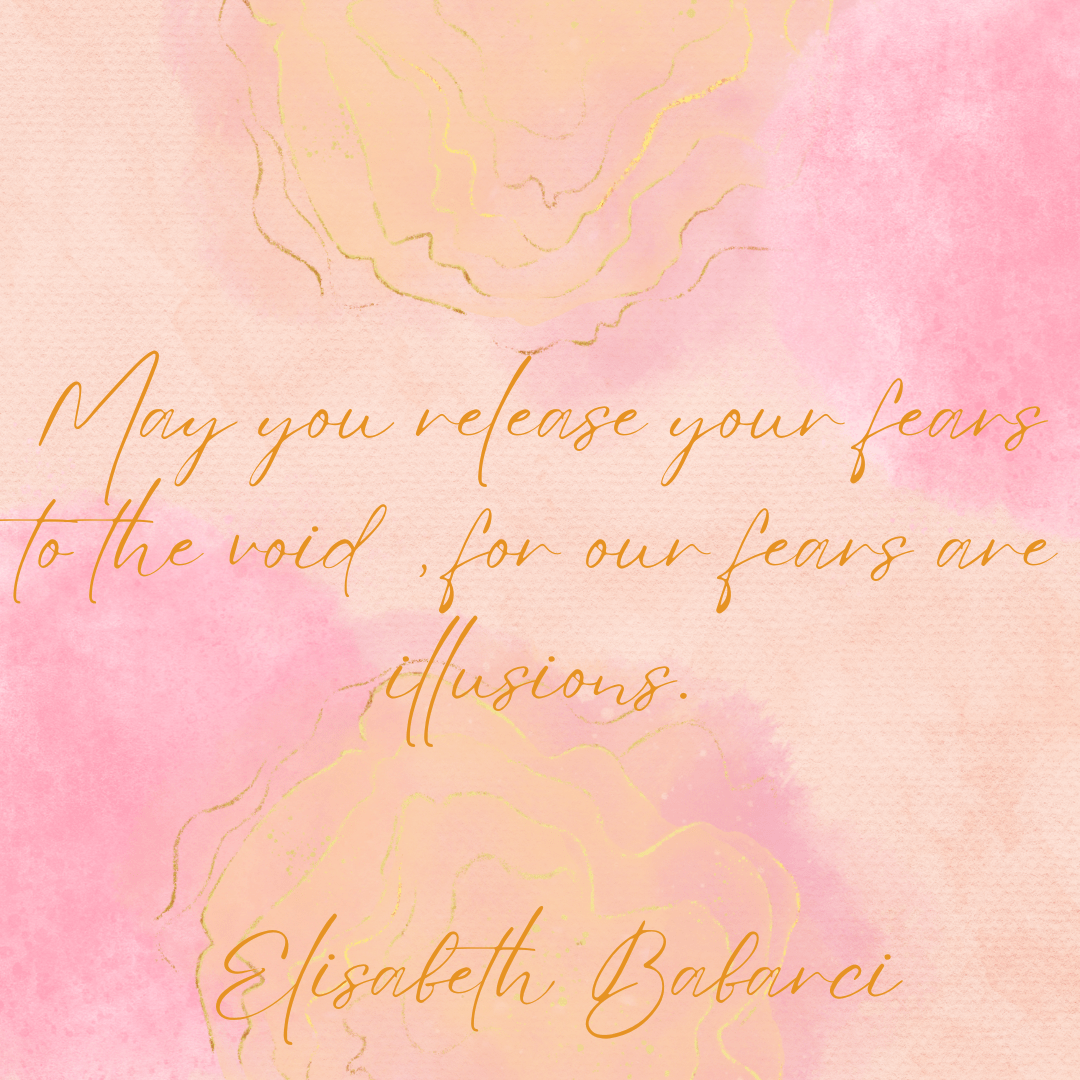 May you release your fears
to the void , for our fears are
illusions.
Elisabeth Babarci